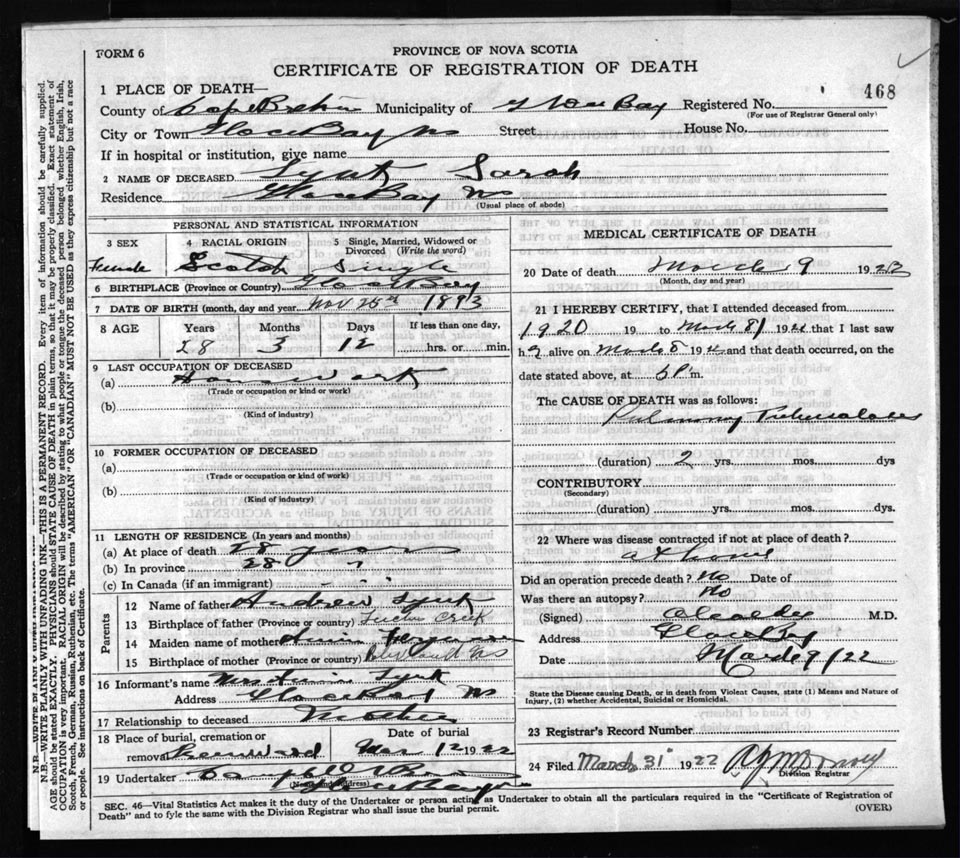 FORM 6
PROVINCE OF NOVA SCOTIA
CERTIFICATE OF REGISTRATION OF DEATH
468
1 PLACE OF DEATH—
County of Cape Breton Municipality of Glace Bay Registered No.
(For use of Registrar General only)
City or Town Glace Bay NS Street House No.
If in hospital or institution, give name
2 NAME OF DECEASED Lynk Sarah
Residence Glace Bay NS
(Usual place of abode)
PERSONAL AND STATISTICAL INFORMATION
3 SEX 4 RACIAL ORIGIN 5 Single, Married, Widowed or Divorced (Write the word)
Female Scotch Single
6 BIRTHPLACE (Province or Country) Glace Bay
7 DATE OF BIRTH (month, day and year) Nov 25th 1893
8 AGE Years Months Days If less than one day,
28 3 12 hrs. or min.
9 LAST OCCUPATION OF DECEASED
(a) Housework
(Trade or occupation or kind or work)
(b)
(Kind of industry)
10 FORMER OCCUPATION OF DECEASED
(a)
(Trade or occupation or kind of work)
(b)
(Kind of industry)
11 LENGTH OF RESIDENCE (In years and months)
(a) At place of death 28 years
(b) In province 28 "
(c) In Canada (if an immigrant)
Parents
12 Name of father Andrew Lynk
13 Birthplace of father (Province or country) Creek
14 Maiden name of mother Ferguson
15 Birthplace of mother (Province or country) NS
16 Informant's name Mrs Lynk
Address Glace Bay NS
17 Relationship to deceased Mother
18 Place of burial, cremation or removal Greenwood Date of burial Mar 12 1922
19 Undertaker
(Name and address)
MEDICAL CERTIFICATE OF DEATH
20 Date of death March 9 1923
(Month, day and year)
21 I HEREBY CERTIFY, that I attended deceased from
1920 19 to March 8 192 that I last saw
h alive on March 8 192 and that death occurred, on the
date stated above, at 6 P m.
The CAUSE OF DEATH was as follows:
Pulmonary Tuberculosis
(duration) 2 yrs. mos. dys
CONTRIBUTORY
(Secondary)
(duration) yrs. mos. dys.
22 Where was disease contracted if not at place of death?
at home
Did an operation precede death? No Date of
Was there an autopsy? No
(Signed) M.D.
Address Glace Bay
Date March 9/22
State the Disease causing Death, or in death from Violent Causes, state (1) Means and Nature of
Injury, (2) whether Accidental, Suicidal or Homicidal.
23 Registrar's Record Number
24 Filed March 31 1922
Division Registrar
SEC. 46—Vital Statistics Act makes it the duty of the Undertaker or person acting as Undertaker to obtain all the particulars required in the "Certificate of Registration of
Death" and to fyle the same with the Division Registrar who shall issue the burial permit. (OVER)
N.B.—WRITE PLAINLY WITH UNFADING INK—THIS IS A PERMANENT RECORD. Every item of information should be carefully supplied.
AGE should be stated EXACTLY. PHYSICIANS should STATE CAUSE OF DEATH in plain terms, so that it may be properly classified. Exact statement of
OCCUPATION is very important. RACIAL ORIGIN will be described by stating to what people or tongue the deceased person belonged whether English, Irish,
Scotch, French, German, Russian, Ruthenian, etc. The terms "AMERICAN" OR "CANADIAN" MUST NOT BE USED as they express citizenship but not a race
or people. See instructions on back of Certificate.